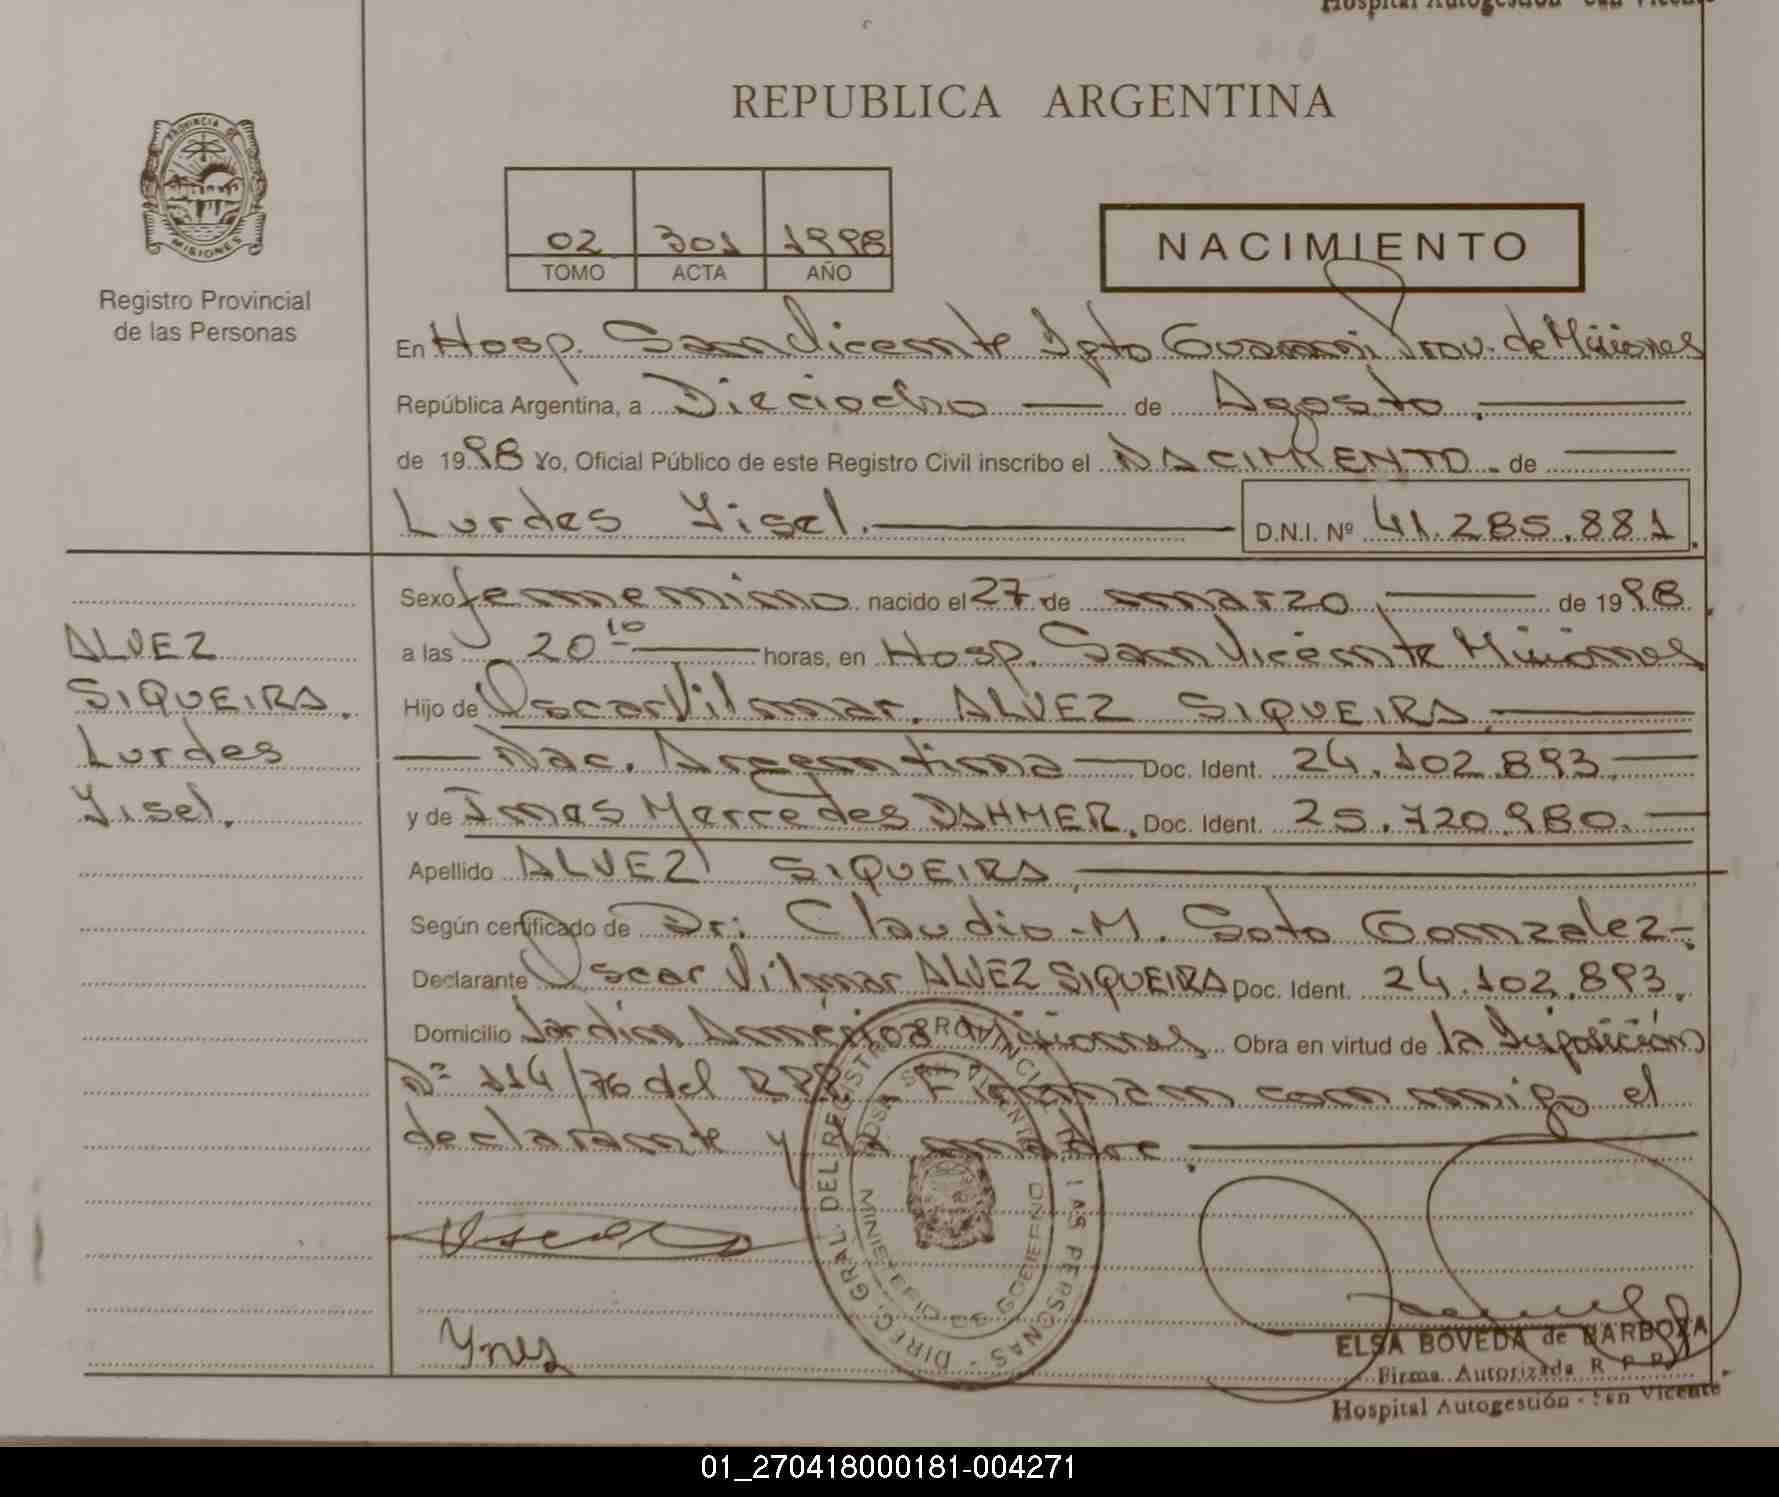 Hospital Autogestión - San Vicente
REPUBLICA ARGENTINA
PROVINCIA DE
MISIONES
Registro Provincial
de las Personas
02 301 1998
TOMO ACTA AÑO
NACIMIENTO
En Hosp. San Vicente Dpto Guaraní Prov. de Misiones
República Argentina, a Dieciocho de Agosto
de 1998 Yo, Oficial Público de este Registro Civil inscribo el NACIMIENTO de
Lurdes Yisel. D.N.I. Nº 41.285.881
Sexo femenino nacido el 27 de marzo de 1998
a las 20 10 horas, en Hosp. San Vicente Misiones
Hijo de Oscar Vilmar. ALVEZ SIQUEIRA
Nac. Argentina Doc. Ident. 24.102.893
y de Ines Mercedes DAHMER. Doc. Ident. 25.720.980.
Apellido ALVEZ SIQUEIRA
Según certificado de Dr. Claudio M. Soto Gonzalez
Declarante Oscar Vilmar ALVEZ SIQUEIRA Doc. Ident. 24.102.893.
Domicilio Jardín América Misiones Obra en virtud de la Disposición
Nº 114/76 del RPP. Firman con migo el
declarante y la madre.
ALVEZ
SIQUEIRA.
Lurdes
Yisel.
DIREC. GRAL. DEL REGISTRO PROVINCIAL DE LAS PERSONAS
HOSP. SAN VICENTE
MINISTERIO DE GOBIERNO
Ynes
ELSA BOVEDA de BARBOZA
Firma Autorizada R P P
Hospital Autogestión - San Vicente
01_270418000181-004271